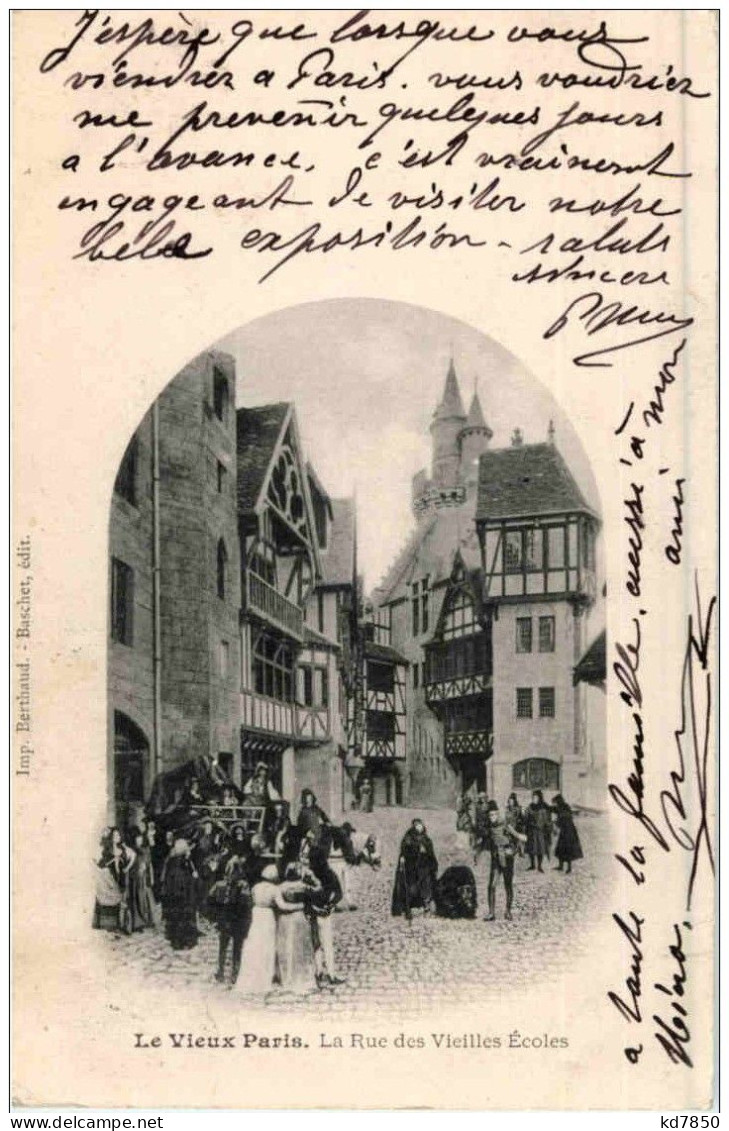 J'espère que lorsque vous
viendrez a Paris. vous voudriez
me prevenir quelques jours
a l'avance, c'est vraiment
engageant de visiter notre
belle exposition - saluts
sincers
a toute la famille, aussi à mon
ami
Imp. Berthaud. - Baschet, édit.
Le Vieux Paris. La Rue des Vieilles Écoles
kd7850